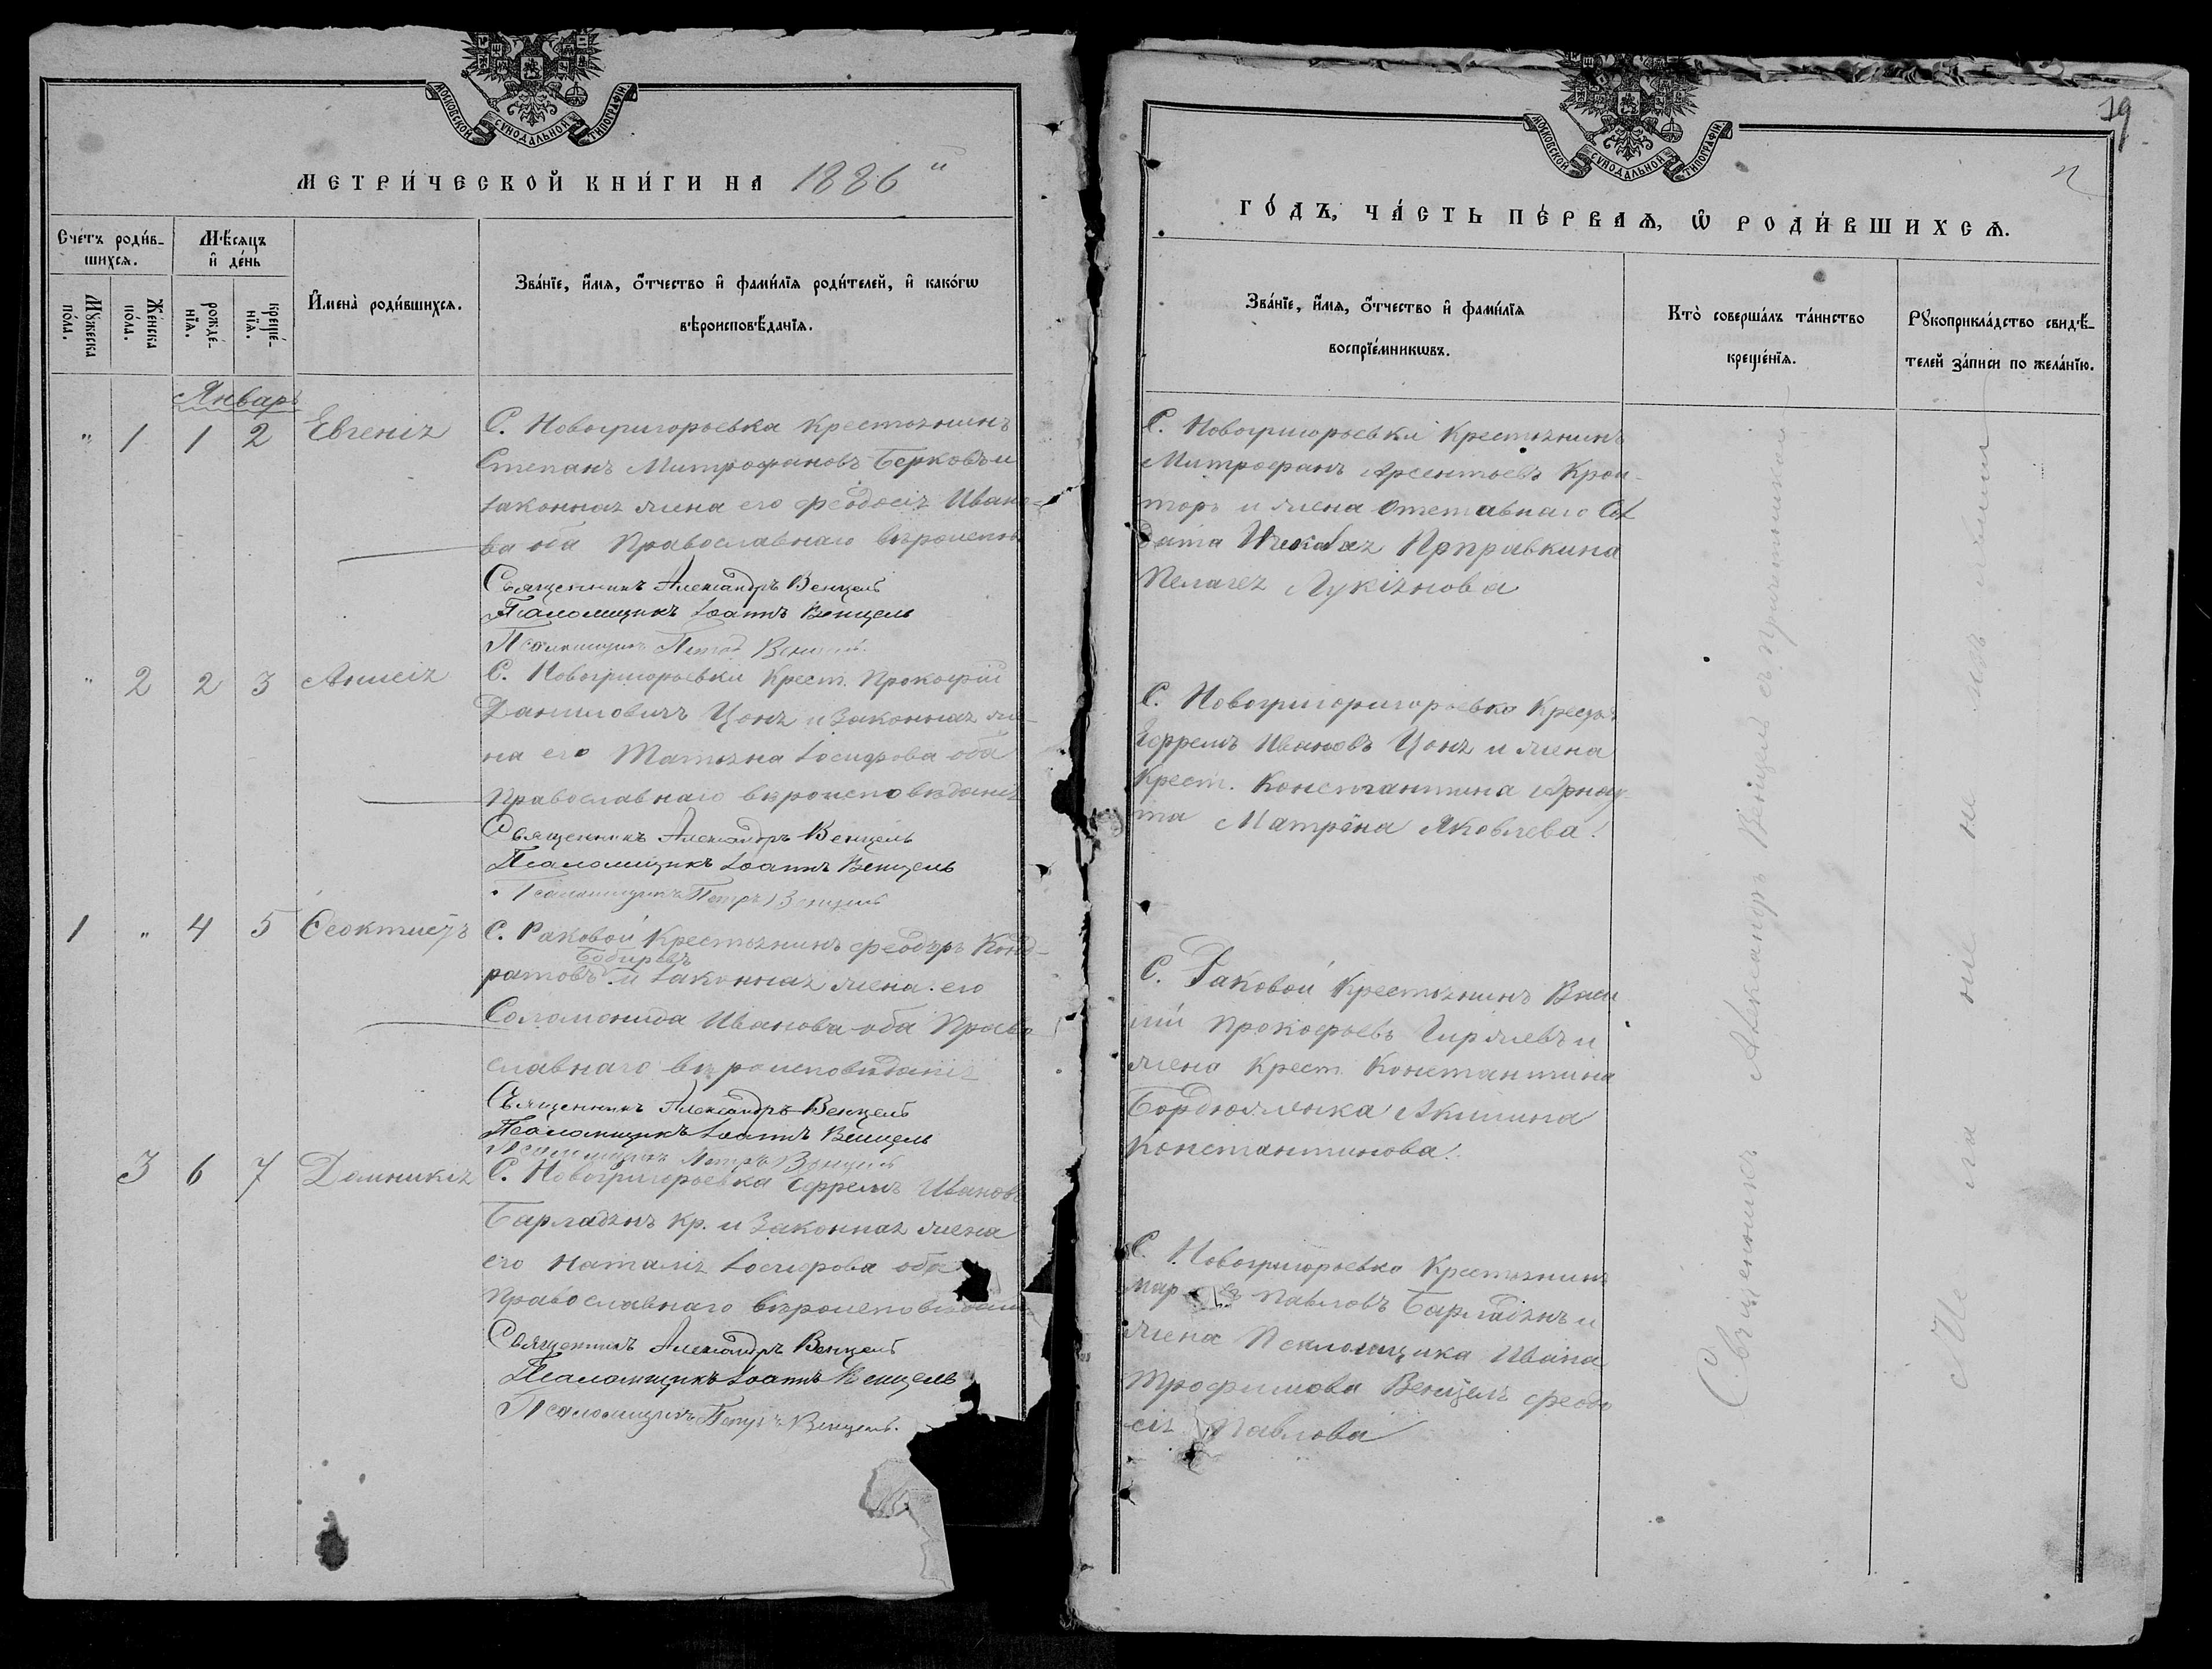 МОСКОВСКОЙ СѴНОДАЛЬНОЙ ТИПОГРАФІИ
МЕТРИ́ЧЕСКОЙ КНИ́ГИ НА 1886
Сче́тъ роди́в-
шихсѧ.
Мѣ́сяцъ
и҆ де́нь
Мꙋ́жеска
по́ла.
Же́нска
по́ла.
рожде́-
нїѧ.
креще́-
нїѧ.
И҆мена̀ роди́вшихсѧ.
Зва́нїе, и҆́мя, ѻ҆́тчество и҆ фами́лїя роди́телей, и҆ како́гѡ
вѣроисповѣ́данїѧ.
Январь
" 1 1 2 Евгенія С. Новогригорьевка Крестьянинъ
Степанъ Митрофановъ Берковъ и
законная жена его Феодосія Ивано-
ва оба Православнаго вѣроиспов
Священникъ Александръ Венцель
Псаломщикъ Іоаннъ Венцель
Псаломщикъ Петръ Венцель
" 2 2 3 Анисія С. Новогригорьевки Крест. Прокофій
Даниловичъ Цоня и Законная же-
на его Татьяна Іосифова оба
Православнаго вѣроисповѣданія
Священникъ Александръ Венцель
Псаломщикъ Іоаннъ Венцель
Псаломщикъ Петръ Венцель
1 " 4 5 Феоктистъ С. Раковой Крестьянинъ Феодоръ Конд-
ратовъ Бобыревъ и Законная жена его
Соломонида Иванова оба Право
славнаго вѣроисповѣданія
Священникъ Александръ Венцель
Псаломщикъ Іоаннъ Венцель
Псаломщикъ Петръ Венцель
3 6 7 Домникія С. Новогригорьевка Ефремъ Ивановъ
Барладянъ Кр. и Законная жена
его Наталія Іосифова оба
Православнаго вѣроисповѣданія
Священникъ Александръ Венцель
Псаломщикъ Іоаннъ Венцель
Псаломщикъ Петръ Венцель.
МОСКОВСКОЙ СѴНОДАЛЬНОЙ ТИПОГРАФІИ
19
ГО́ДЪ, ЧА́СТЬ ПЕ́РВАЯ, Ѡ҆ РОДИ́ВШИХСѦ.
Зва́нїе, и҆́мя, ѻ҆́тчество и҆ фами́лїя
воспрїе́мникѡвъ.
Кто̀ соверша́лъ та́инство
креще́нїѧ.
Рꙋкоприкла́дство свидѣ́-
телей за́писи по жела́нїю.
С. Новогригорьевки Крестьянинъ
Митрофанъ Арсентьевъ
и жена Отставнаго Сол
дата Поправкина
Пелагея Лукіянова
С. Новогригоригорьевка Крестья
Ефремъ Ивановъ Цоня и жена
Крест. Константина Арнау
та Матрёна Яковлева.
С. Раковой Крестьянинъ Васи
лій Прокофьевъ и
жена Крест. Константина
Акилина
Константинова.
С. Новогригорьевка Крестьянинъ
Павловъ Барладянъ и
жена Псаломщика Ивана
Трофимова Венцель Феодо
сія Павлова
Священникъ Александръ Венцель съ Причтомъ